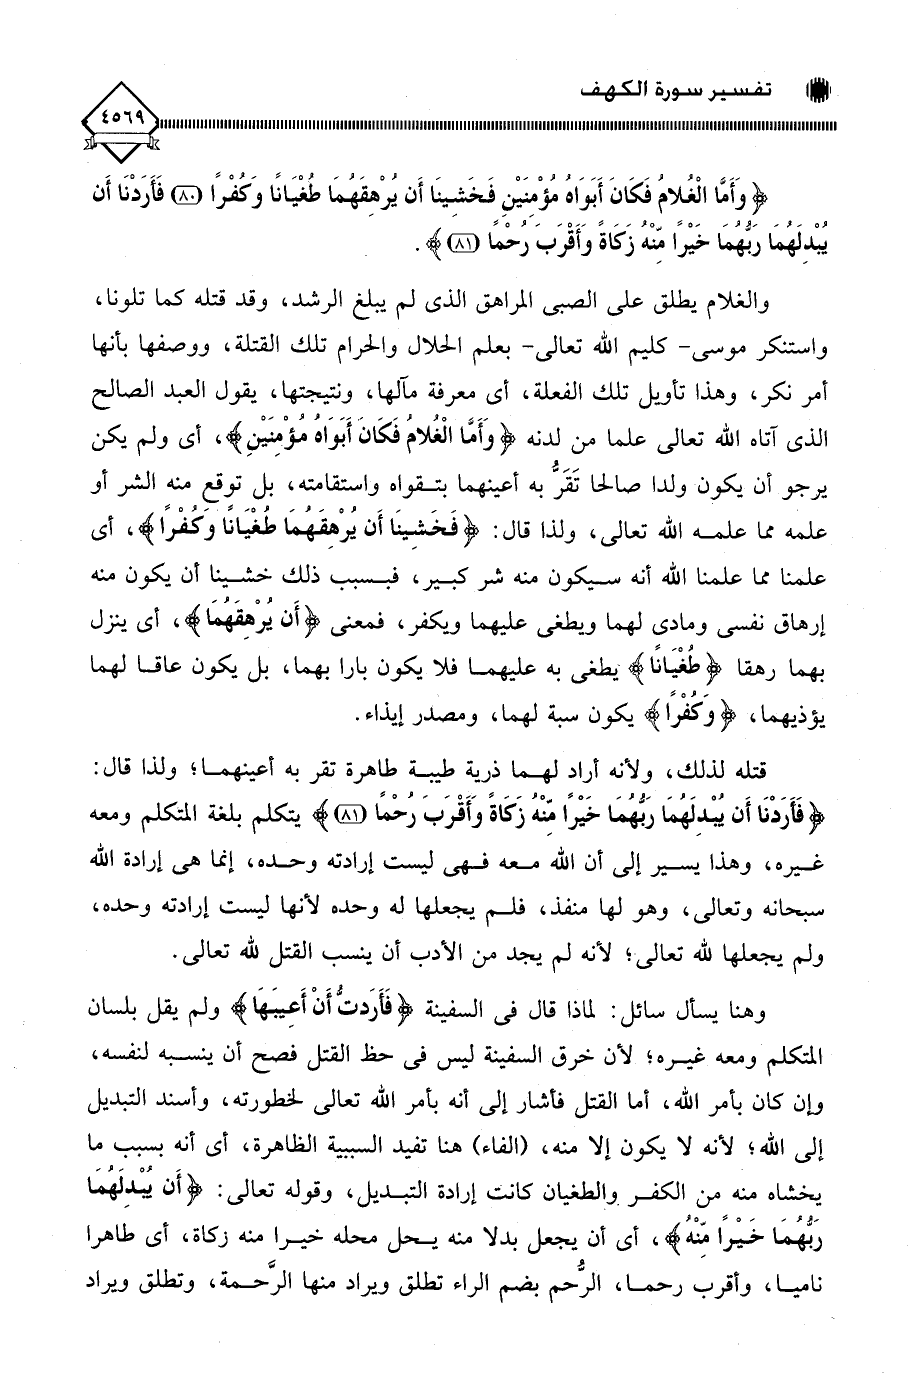 تفسير سورة الكهف
٤٥٦٩
﴿ وَأَمَّا الْغُلامُ فَكَانَ أَبَوَاهُ مُؤْمِنَيْنِ فَخَشِينَا أَن يُرْهِقَهُمَا طُغْيَانًا وَكُفْرًا (٨٠) فَأَرَدْنَا أَن
يُبْدِلَهُمَا رَبُّهُمَا خَيْرًا مِّنْهُ زَكَاةً وَأَقْرَبَ رُحْمًا (٨١) ﴾ .
والغلام يطلق على الصبى المراهق الذى لم يبلغ الرشد، وقد قتله كما تلونا،
واستنكر موسى- كليم الله تعالى- بعلم الحلال والحرام تلك القتلة، ووصفها بأنها
أمر نكر، وهذا تأويل تلك الفعلة، أى معرفة مآلها، ونتيجتها، يقول العبد الصالح
الذى آتاه الله تعالى علما من لدنه ﴿ وَأَمَّا الْغُلامُ فَكَانَ أَبَوَاهُ مُؤْمِنَيْنِ ﴾، أى ولم يكن
يرجو أن يكون ولدا صالحا تَقَرُّ به أعينهما بتقواه واستقامته، بل توقع منه الشر أو
علمه مما علمه الله تعالى، ولذا قال: ﴿ فَخَشِينَا أَن يُرْهِقَهُمَا طُغْيَانًا وَكُفْرًا ﴾، أى
علمنا مما علمنا الله أنه سيكون منه شر كبير، فبسبب ذلك خشينا أن يكون منه
إرهاق نفسى ومادى لهما ويطغى عليهما ويكفر، فمعنى ﴿ أَن يُرْهِقَهُمَا ﴾، أى ينزل
بهما رهقا ﴿ طُغْيَانًا ﴾ يطغى به عليهما فلا يكون بارا بهما، بل يكون عاقا لهما
يؤذيهما، ﴿ وَكُفْرًا ﴾ يكون سبة لهما، ومصدر إيذاء.
قتله لذلك، ولأنه أراد لهما ذرية طيبة طاهرة تقر به أعينهما؛ ولذا قال:
﴿ فَأَرَدْنَا أَن يُبْدِلَهُمَا رَبُّهُمَا خَيْرًا مِّنْهُ زَكَاةً وَأَقْرَبَ رُحْمًا (٨١) ﴾ يتكلم بلغة المتكلم ومعه
غيره، وهذا يسير إلى أن الله معه فهى ليست إرادته وحده، إنما هى إرادة الله
سبحانه وتعالى، وهو لها منفذ، فلم يجعلها له وحده لأنها ليست إرادته وحده،
ولم يجعلها لله تعالى؛ لأنه لم يجد من الأدب أن ينسب القتل لله تعالى.
وهنا يسأل سائل: لماذا قال فى السفينة ﴿ فَأَرَدتُّ أَنْ أَعِيبَهَا ﴾ ولم يقل بلسان
المتكلم ومعه غيره؛ لأن خرق السفينة ليس فى حظ القتل فصح أن ينسبه لنفسه،
وإن كان بأمر الله، أما القتل فأشار إلى أنه بأمر الله تعالى لخطورته، وأسند التبديل
إلى الله؛ لأنه لا يكون إلا منه، (الفاء) هنا تفيد السببية الظاهرة، أى أنه بسبب ما
يخشاه منه من الكفر والطغيان كانت إرادة التبديل، وقوله تعالى: ﴿ أَن يُبْدِلَهُمَا
رَبُّهُمَا خَيْرًا مِّنْهُ ﴾، أى أن يجعل بدلا منه يحل محله خيرا منه زكاة، أى طاهرا
ناميا، وأقرب رحما، الرُّحم بضم الراء تطلق ويراد منها الرَّحمة، وتطلق ويراد